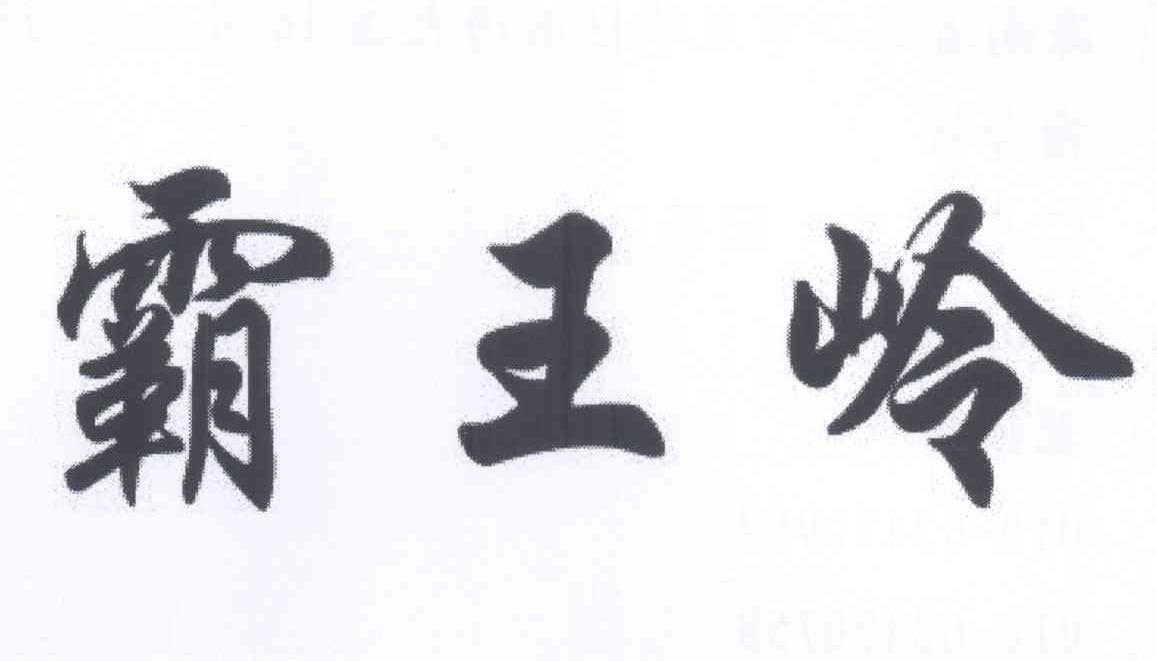 霸王岭